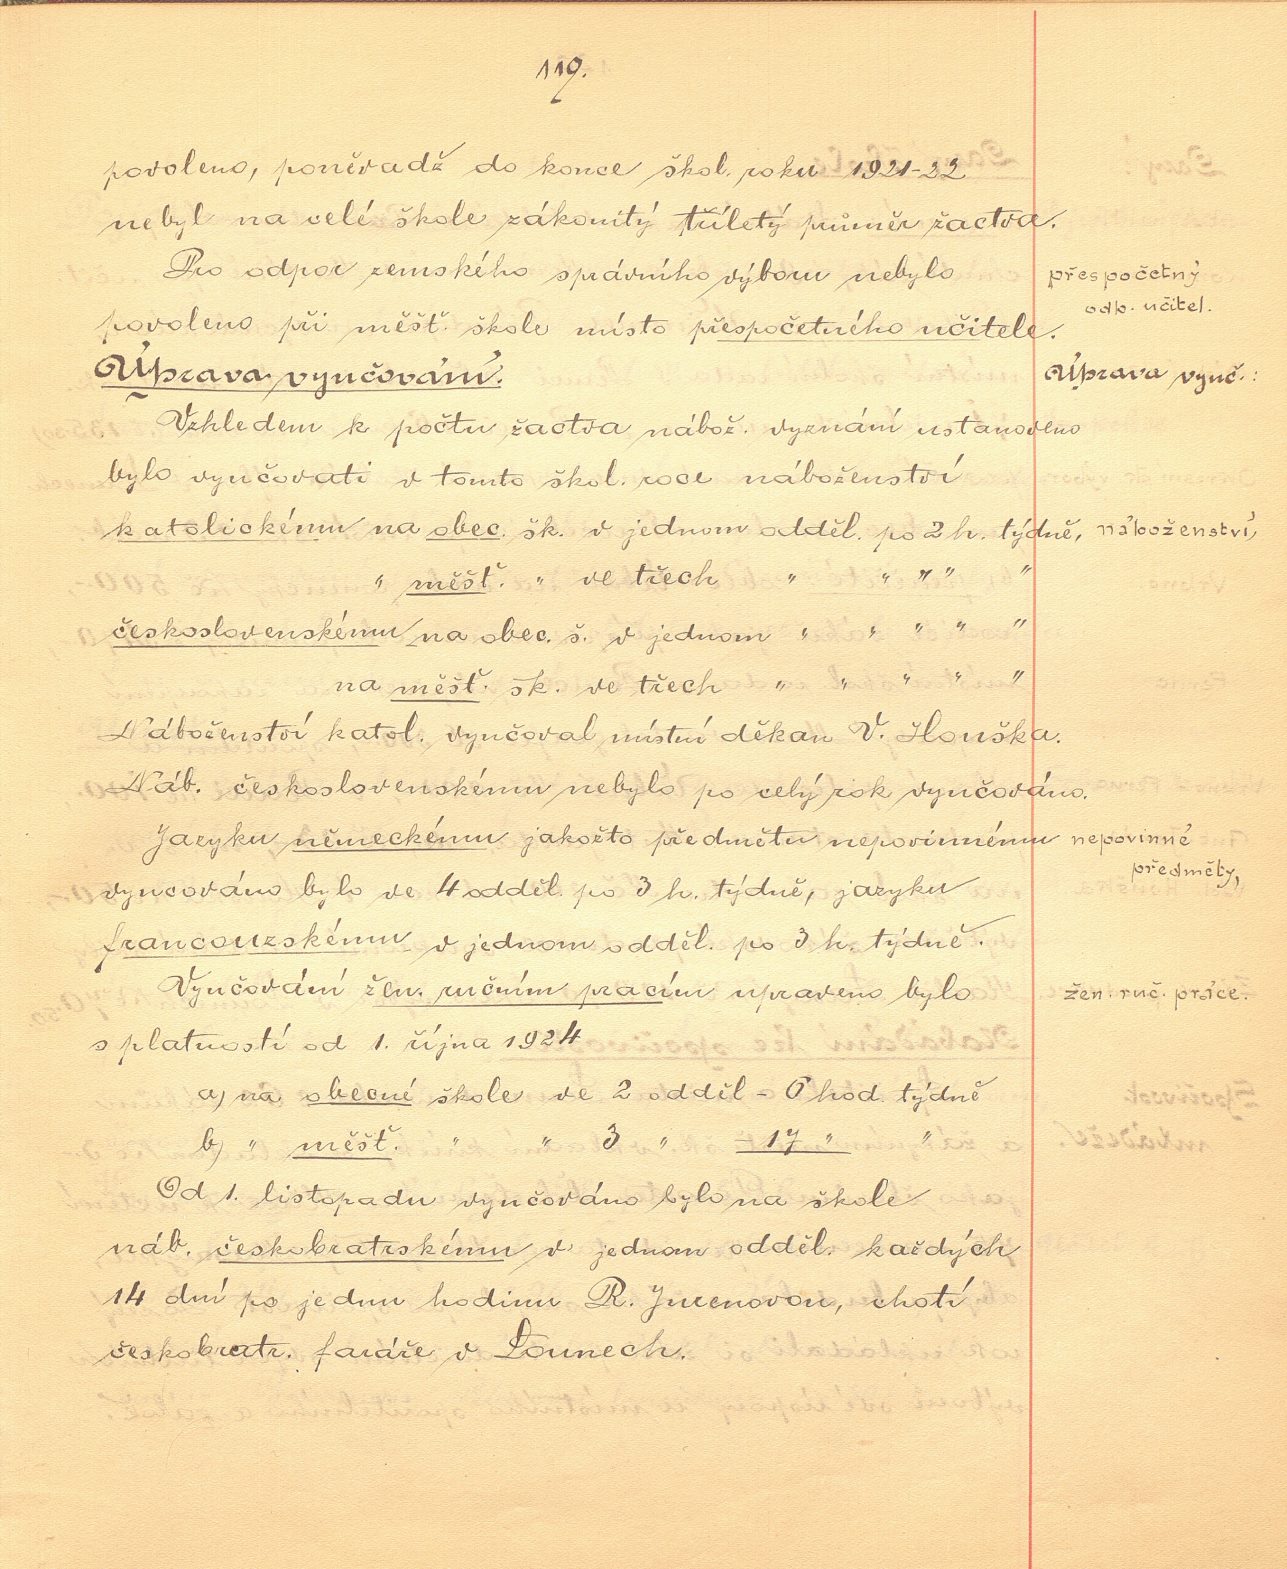 119.
povoleno, poněvadž do konce škol. roku 1921-22
nebyl na celé škole zákonitý tříletý průměr žactva.
Pro odpor zemského správního výboru nebylo
přespočetný
odb. učitel.
povoleno při měšť. škole místo přespočetného učitele.
Úprava vyučování.
Úprava vyuč.:
Vzhledem k počtu žactva nábož. vyznání ustanoveno
bylo vyučovati v tomto škol. roce náboženství
katolickému na obec. šk. v jednom odděl. po 2 h. týdně,
náboženství,
" měšť. " ve třech " " " " "
československému na obec. š. v jednom " " " " "
na měšť. šk. ve třech " " " " "
Náboženství katol. vyučoval místní děkan V. Houška.
Náb. československému nebylo po celý rok vyučováno.
Jazyku německému jakožto předmětu nepovinnému
nepovinné
předměty,
vyucováno bylo ve 4 odděl. po 3 h. týdně, jazyku
francouzskému v jednom odděl. po 3 h. týdně.
Vyučování žen. ručním pracím upraveno bylo
žen. ruč. práce.
s platností od 1. října 1924
a) na obecné škole ve 2 odděl - 6 hod. týdně
b) " měšť. " " 3 " - 17 " "
Od 1. listopadu vyučováno bylo na škole
náb. českobratrskému v jednom odděl. každých
14 dní po jednu hodinu R. Jurenovou, chotí
českobratr. faráře v Lounech.